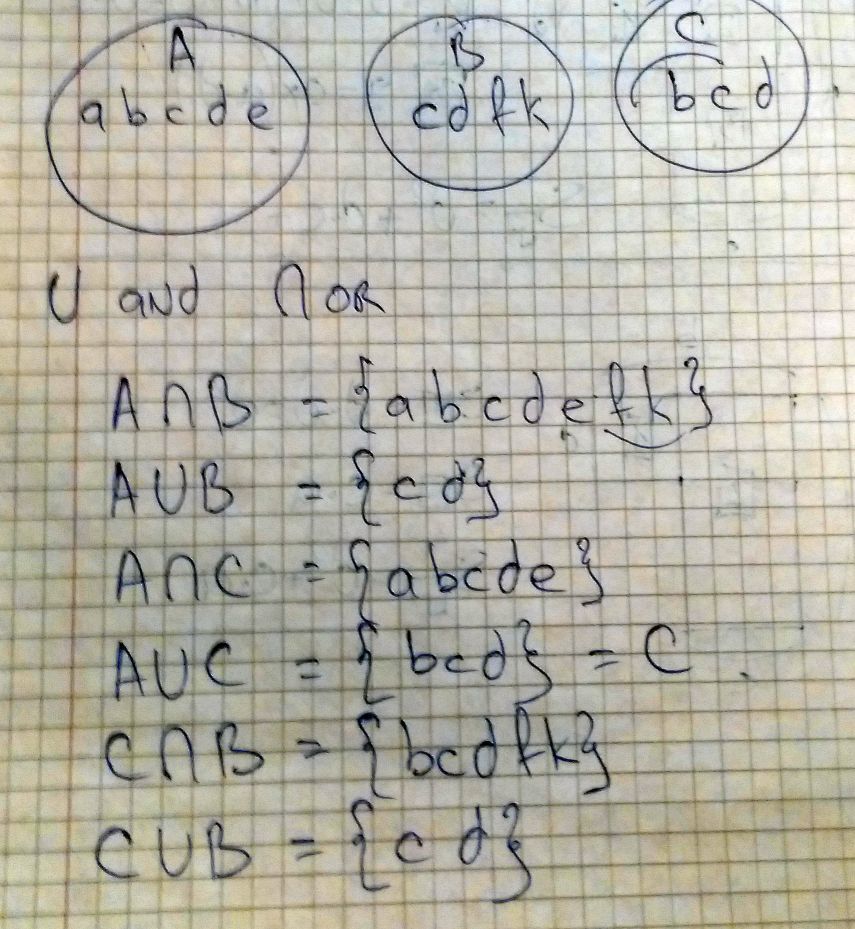 A B C
abcde cdfk bcd
U and ∩ OR
A∩B = {abcdefk}
A∪B = {cd}
A∩C = {abcde}
A∪C = {bcd} = C
C∩B = {bcdfk}
C∪B = {cd}